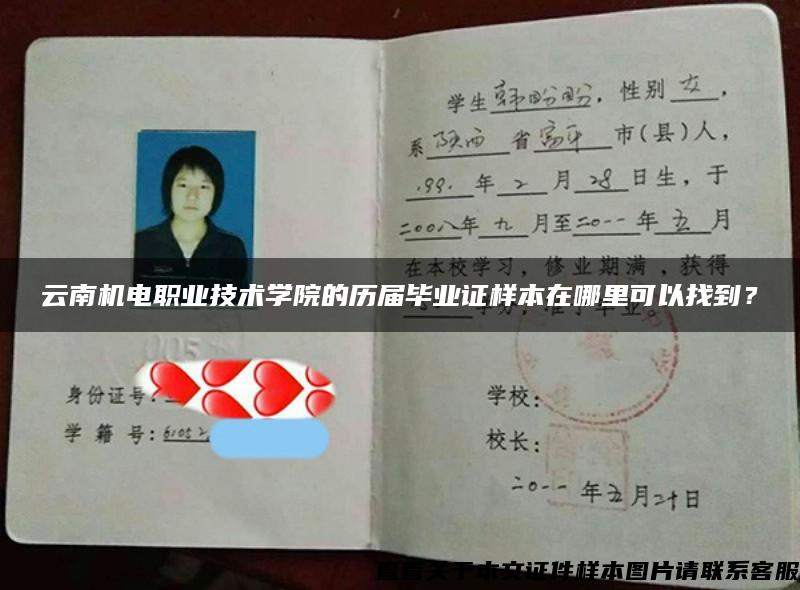 学生韩盼盼，性别女，
系陕西省富平市(县)人，
1991年2月28日生，于
二00八年九月至二0一一年五月
在本校学习，修业期满，获得
云南机电职业技术学院的历届毕业证样本在哪里可以找到？
学分，准予毕业。
005
身份证号：
学籍号：6105
学校：
校长：
二0一一年五月二十日
查看关于本文证件样本图片请联系客服